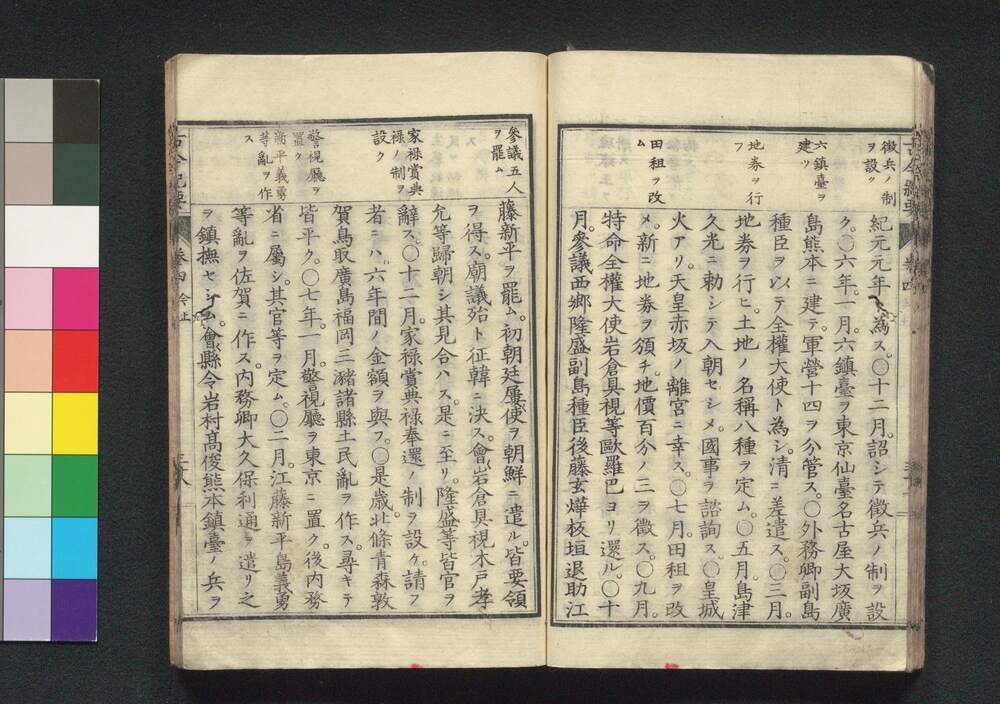 徴兵ノ制
ヲ設ク
六鎭臺ヲ
建ツ
地券ヲ行
フ
田租ヲ改
ム
紀元元年ト為ス。〇十二月。詔シテ徴兵ノ制ヲ設
ク。〇六年。一月。六鎭臺ヲ東京仙臺名古屋大坂廣
島熊本ニ建テ軍營十四ヲ分管ス。〇外務卿副島
種臣ヲ以テ全權大使ト為シ。清ニ差遣ス。〇三月。
地券ヲ行ヒ。土地ノ名稱八種ヲ定ム。〇五月。島津
久光ニ勅シテ入朝セシメ。國事ヲ諮詢ス。〇皇城
火アリ。天皇赤坂ノ離宮ニ幸ス。〇七月。田租ヲ改
メ。新ニ地券ヲ頒チ。地價百分ノ三ヲ徴ス。〇九月。
特命全權大使岩倉具視等歐羅巴ヨリ還ル。〇十
月。參議西郷隆盛副島種臣後藤玄燁板垣退助江
古今紀要
卷四
參議五人
ヲ罷ム
家禄賞典
禄ノ制ヲ
設ク
警視廳ヲ
置ク
新平義勇
等亂ヲ作
ス
藤新平ヲ罷ム。初朝廷屢使ヲ朝鮮ニ遣ル。皆要領
ヲ得ス。廟議殆ト征韓ニ決ス。會岩倉具視木戸孝
允等歸朝シ其見合ハス。是ニ至リ。隆盛等皆官ヲ
辭ス。〇十二月。家禄賞典禄奉還ノ制ヲ設ケ。請フ
者ニハ六年間ノ金額ヲ與フ。〇是歳北條青森敦
賀鳥取廣島福岡三瀦諸縣土民亂ヲ作ス。尋キテ
皆平ク。〇七年。一月。警視廳ヲ東京ニ置ク。後内務
省ニ屬シ。其官等ヲ定ム。〇二月。江藤新平島義勇
等亂ヲ佐賀ニ作ス。内務卿大久保利通ヲ遣リ之
ヲ鎮撫セシム。會縣令岩村髙俊熊本鎮臺ノ兵ヲ
古今紀要
卷四
今上